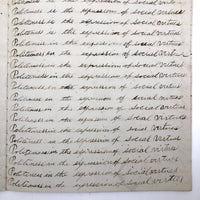 Politeness is the expression of social virtues
Politeness is the expression of social virtues
Politeness is the expression of social virtues
Politeness is the expression of social virtues
Politeness is the expression of social virtues
Politeness is the expression of social virtues
Politeness is the expression of social virtues
Politeness is the expression of social virtues
Politeness is the expression of social virtues
Politeness is the expression of social virtues
Politeness is the expression of social virtues
Politeness is the expression of social virtues
Politeness is the expression of social virtues
Politeness is the expression of social virtues
Politeness is the expression of social virtues
Politeness is the expression of social virtues
Politeness is the expression of social virtues